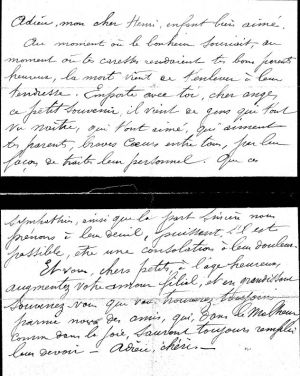 Adieu, mon cher Henri, enfant bien aimé.
Au moment où le bonheur souriait, au
moment où tes caresses rendaient tes bons parents
heureux, la mort vient de t'enlever à leur
tendresse. Emporte avec toi, cher ange,
ce petit souvenir, il vient de gens qui t'ont
vu naître, qui t'ont aimé, qui aiment
tes parents, braves cœurs entre tous, par leur
façon de traiter leur personnel. Que ces
sympathies, ainsi que la part sincère que nous
prenons à leur deuil, puissent, s'il est
possible, être une consolation à leur douleur.
Et vous, chers petits, à l'âge heureux,
augmentez votre amour filial, et en grandissant
souvenez-vous que vous trouverez toujours
parmi nous des amis, qui, dans le Malheur
comme dans la joie, sauront toujours remplir
leur devoir - Adieu, chéri -